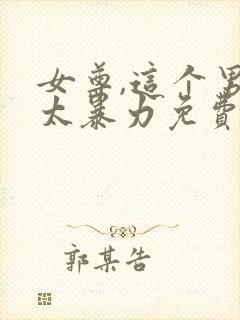 女尊,這个男
太暴力免費
郭某告